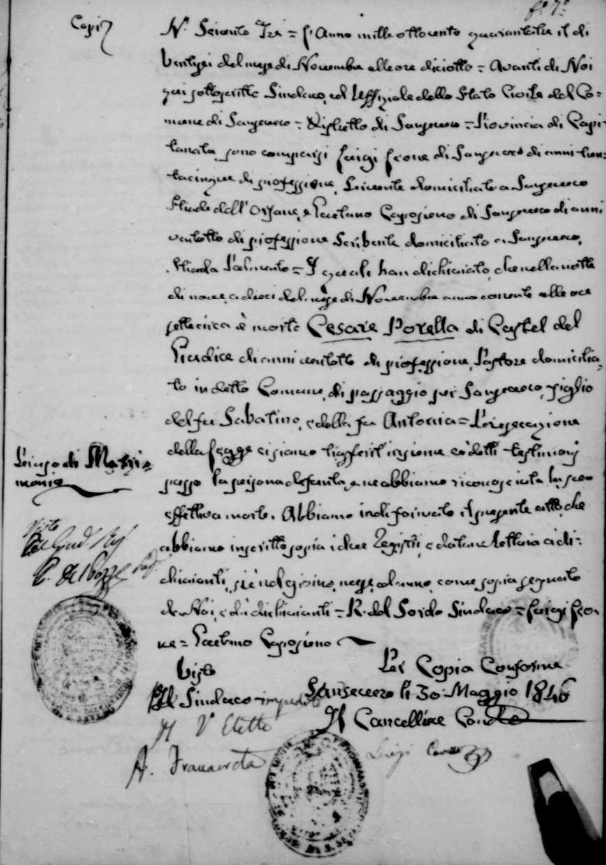 Copia
N.º Seicento Tre = L'Anno mille ottocento quarantatre il di
Ventisei del mese di Novembre alle ore diciotto = Avanti di Noi
qui sottoscritto Sindaco, ed Uffiziale dello Stato Civile del Co-
mune di Sansevero = Distretto di Sansevero = Provincia di Capi-
tanata, sono comparsi Luigi Leone di Sansevero di anni tren-
tacinque di professione Scrivente domiciliato a Sansevero
Strada dell'Orfane, e Gaetano di Sansevero di anni
ventotto di professione Scribente domiciliato a Sansevero,
Strada = I quali han dichiarato, che nella notte
di nove, a dieci del mese di Novembre anno corrente alle ore
sette circa è morto Cesare Porella di Castel del
Giudice di anni ventotto di professione Pastore domicilia-
to in detto Comune, di passaggio per Sansevero, figlio
del fu Sabatino, e della fu Antonia = Per esecuzione
della Legge ci siamo trasferiti insieme co' detti testimonj
presso la persona defunta, e ne abbiamo riconosciuta la sua
effettiva morte. Abbiamo indi formato il presente atto, che
abbiamo inscritto sopra i due Registri, e datane lettura ai di-
chiaranti, si è nel giorno, mese, ed anno, come sopra segnato
da Noi, e da' dichiaranti = R. del Sordo Sindaco = Luigi Leo-
ne = Gaetano
Per uso di Matri-
monio
Visto
Visto
Il Sindaco impedito
Per Copia Conforme
Sansevero li 30 Maggio 1846
Il Cancelliere
Luigi